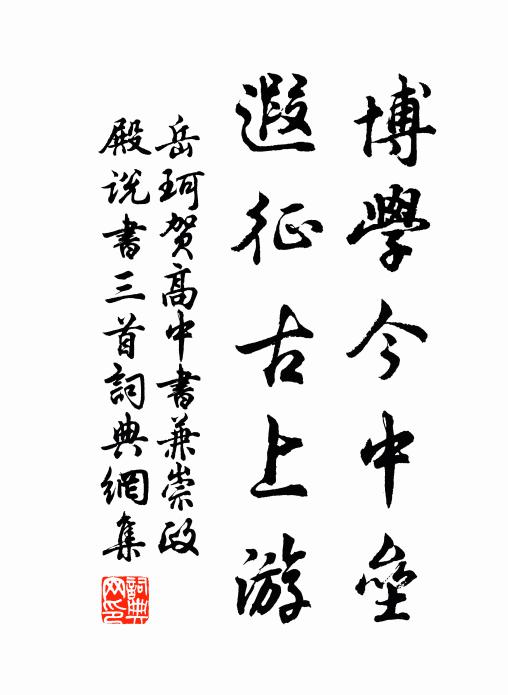 博學今中壘
遐征古上游
岳珂賀高中書兼崇政
殿説書三首詞典網集
詞典网印